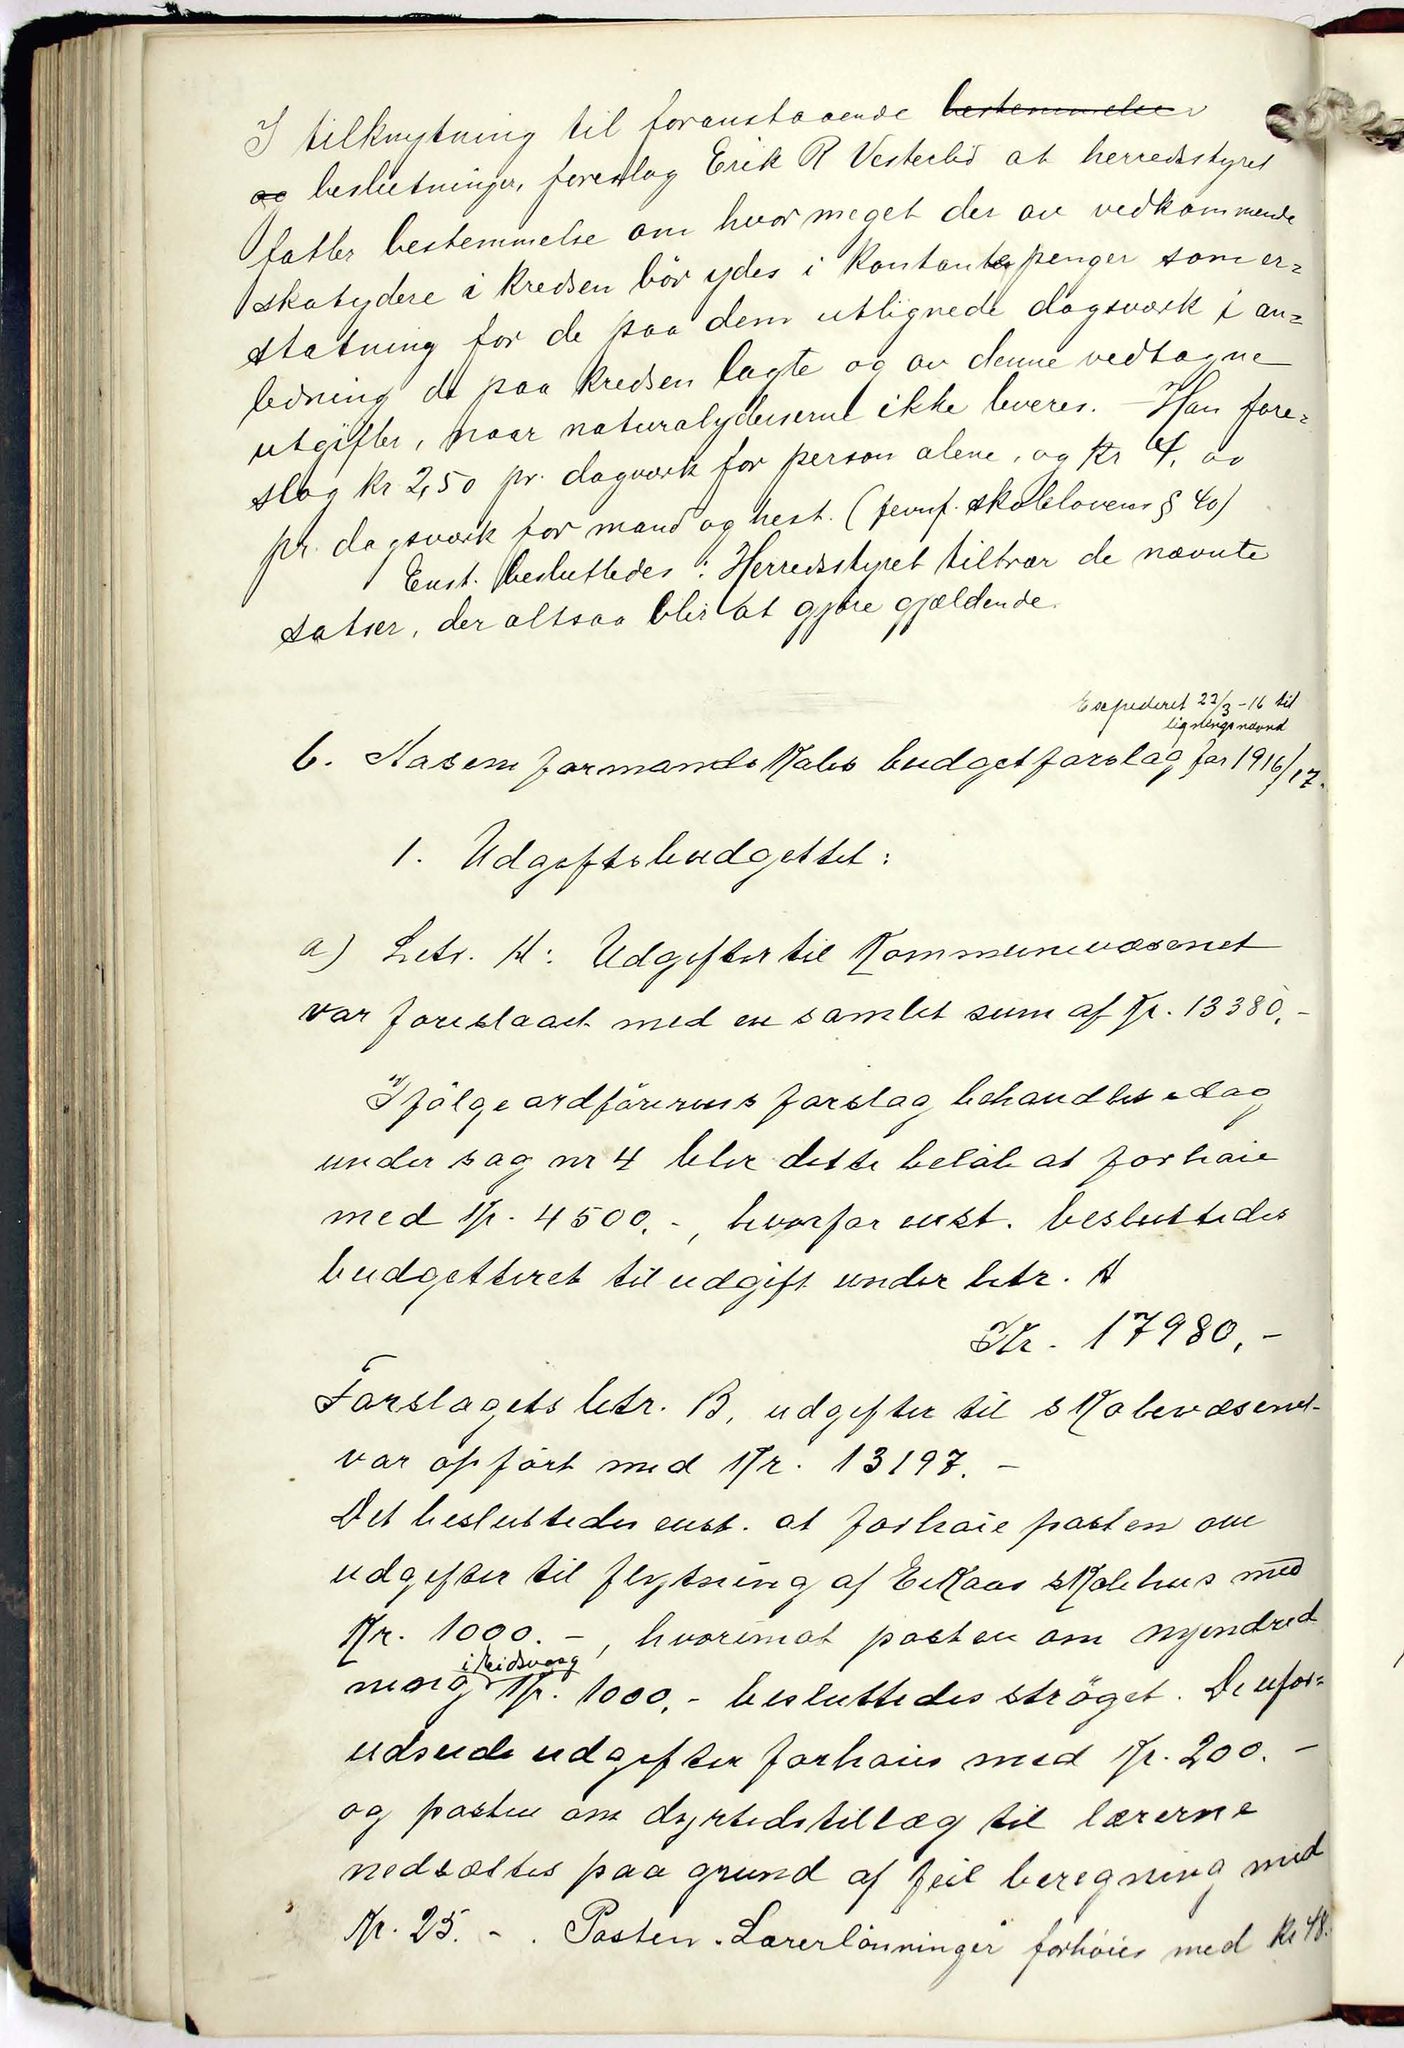 I tilknytning til foranstaaende bestemmelser
og beslutninger, foreslog Erik R Vesterlid at herredsstyret
fatter bestemmelse om hvor meget der av vedkommende
skatydere i kredsen bör ydes i kontante penger som er=
statning for de paa dem utlignede dagsverk i an=
ledning de paa kredsen lagte og av denne vedtagne
utgifter, naar naturalydelserne ikke leveres. - Han fore=
slog kr 2,50 pr. dagverk for person alene, og kr 4,00
pr. dagsverk for mand og hest. (jevnf. skolelovens § 40)
Enst. besluttedes: Herredsstyret tiltrær de nævnte
satser, der altsaa blir at gjöre gjældende.
Expederet 22/3-16 til
ligningsnævnd
6. Aasens formandskabs budgetforslag for 1916/17.
1. Udgiftsbudgettet:
a) Litr. A: Udgifter til Kommunevæsenet
var foreslaaet med en samlet sum af Kr. 13380,-
Ifölge ordförerens forslag behandlet idag
under sag nr 4 blir dette belöb at forhöie
med Kr. 4500.-, hvorfor enst. besluttedes
budgetteret til udgift under litr. A
Kr. 17980,-
Forslagets litr. B, udgifter til skolevæsenet
var opfört med Kr. 13197.-
Det besluttedes enst. at forhöie posten om
udgifter til flytning af Ekaas skolehus med
Kr. 1000.-, hvorimot posten om nyindred
ning i Eidsvaag Kr. 1000,- besluttedes ströget. De ufor=
udseede udgifter forhöies med Kr. 200.-
og posten om dyrtidstillæg til lærerne
nedsættes paa grund af feil beregning med
Kr. 25.-. Posten "Lærerlönninger" forhöies med kr 48.